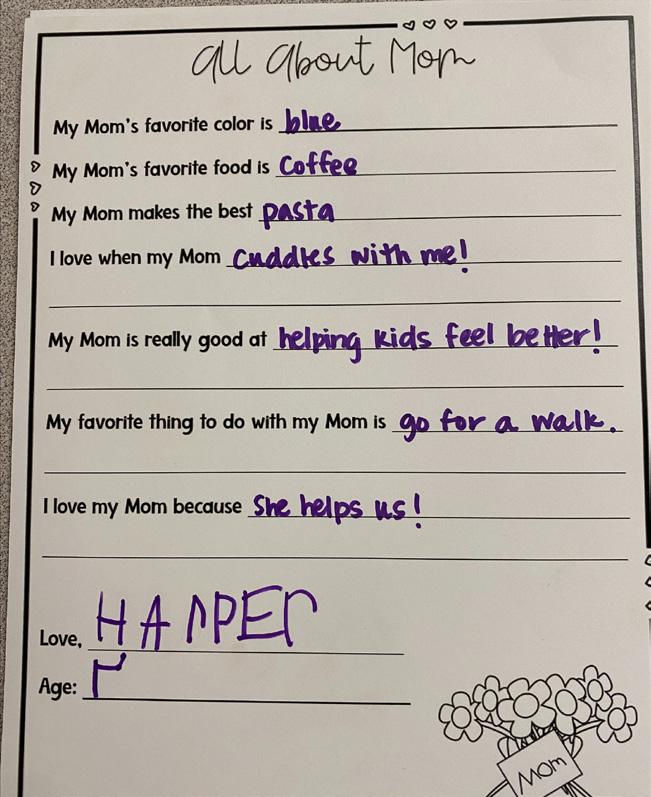 all about Mom
My Mom's favorite color is blue
My Mom's favorite food is Coffee
My Mom makes the best pasta
I love when my Mom cuddles with me!
My Mom is really good at helping kids feel better!
My favorite thing to do with my Mom is go for a walk.
I love my Mom because She helps us!
Love, HArPEr
Age:
Mom